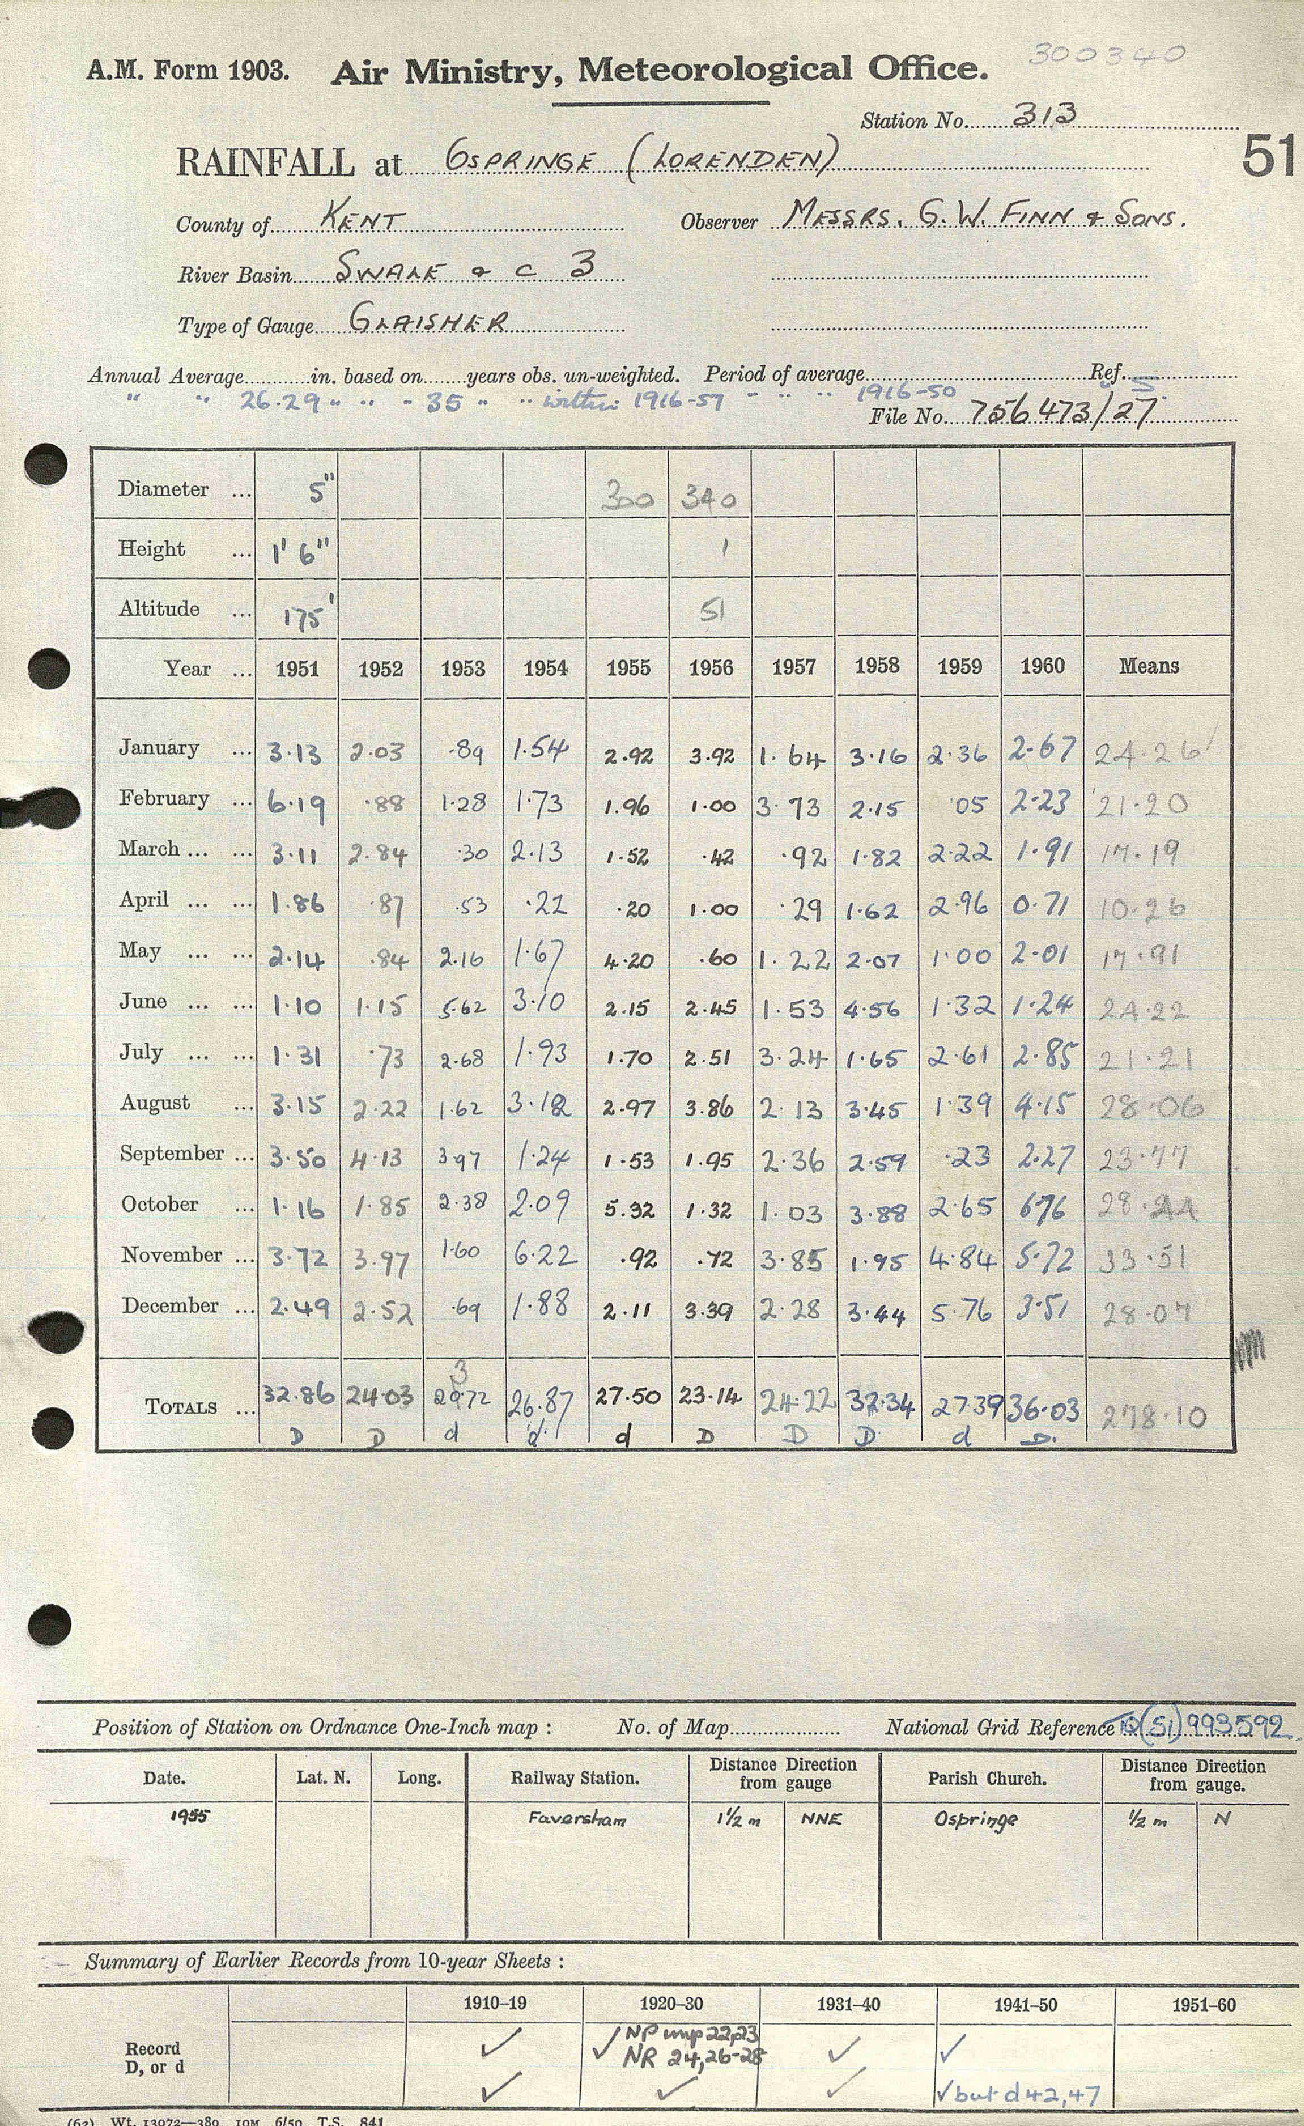 300340
A.M. Form 1903. Air Ministry, Meteorological Office.
Station No. 313
51
RAINFALL at OSPRINGE (LORENDEN)
County of KENT Observer MESSRS. G. W. FINN & SONS.
River Basin SWALE & C 3
Type of Gauge GLAISHER
Annual Average in. based on years obs. un-weighted. Period of average Ref. S.
" " 26.29 " " - 35 " " within 1916-57 - " " 1916-50
File No. 756473/27
Diameter ... 5" 300 340
Height ... 1' 6" 1
Altitude ... 175' 51
Year ... 1951 1952 1953 1954 1955 1956 1957 1958 1959 1960 Means
January ... 3.13 2.03 .89 1.54 2.92 3.92 1.64 3.16 2.36 2.67 24.26
February ... 6.19 .88 1.28 1.73 1.96 1.00 3.73 2.15 .05 2.23 21.20
March ... ... 3.11 2.84 .30 2.13 1.52 .42 .92 1.82 2.22 1.91 17.19
April ... ... 1.86 .87 .53 .22 .20 1.00 .29 1.62 2.96 0.71 10.26
May ... ... 2.14 .84 2.16 1.67 4.20 .60 1.22 2.07 1.00 2.01 17.91
June ... ... 1.10 1.15 5.62 3.10 2.15 2.45 1.53 4.56 1.32 1.24 24.22
July ... ... 1.31 .73 2.68 1.93 1.70 2.51 3.24 1.65 2.61 2.85 21.21
August ... 3.15 2.22 1.62 3.12 2.97 3.86 2.13 3.45 1.39 4.15 28.06
September ... 3.50 4.13 3.97 1.24 1.53 1.95 2.36 2.59 .23 2.27 23.77
October ... 1.16 1.85 2.38 2.09 5.32 1.32 1.03 3.88 2.65 6.76 28.44
November ... 3.72 3.97 1.60 6.22 .92 .72 3.85 1.95 4.84 5.72 33.51
December ... 2.49 2.52 .69 1.88 2.11 3.39 2.28 3.44 5.76 3.51 28.07
3
TOTALS ... 32.86 24.03 2972 26.87 27.50 23.14 24.22 32.34 27.39 36.03 278.10
D D d d d D D D d D.
Position of Station on Ordnance One-Inch map : No. of Map National Grid Reference TQ(51)993592
Date. Lat. N. Long. Railway Station. Distance Direction from gauge Parish Church. Distance Direction from gauge.
1955 Faversham 1½ m NNE Ospringe ½ m N
Summary of Earlier Records from 10-year Sheets :
1910–19 1920–30 1931–40 1941–50 1951–60
Record ✓ ✓ NP imp 22,23 ✓ ✓
D, or d NR 24,26-28
✓ ✓ ✓ ✓ but d 42,47
(62) Wt. 13072—380 10M 6/50 T.S. 841